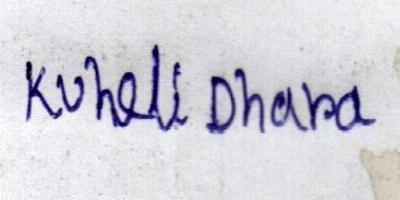 Kuheli Dhara